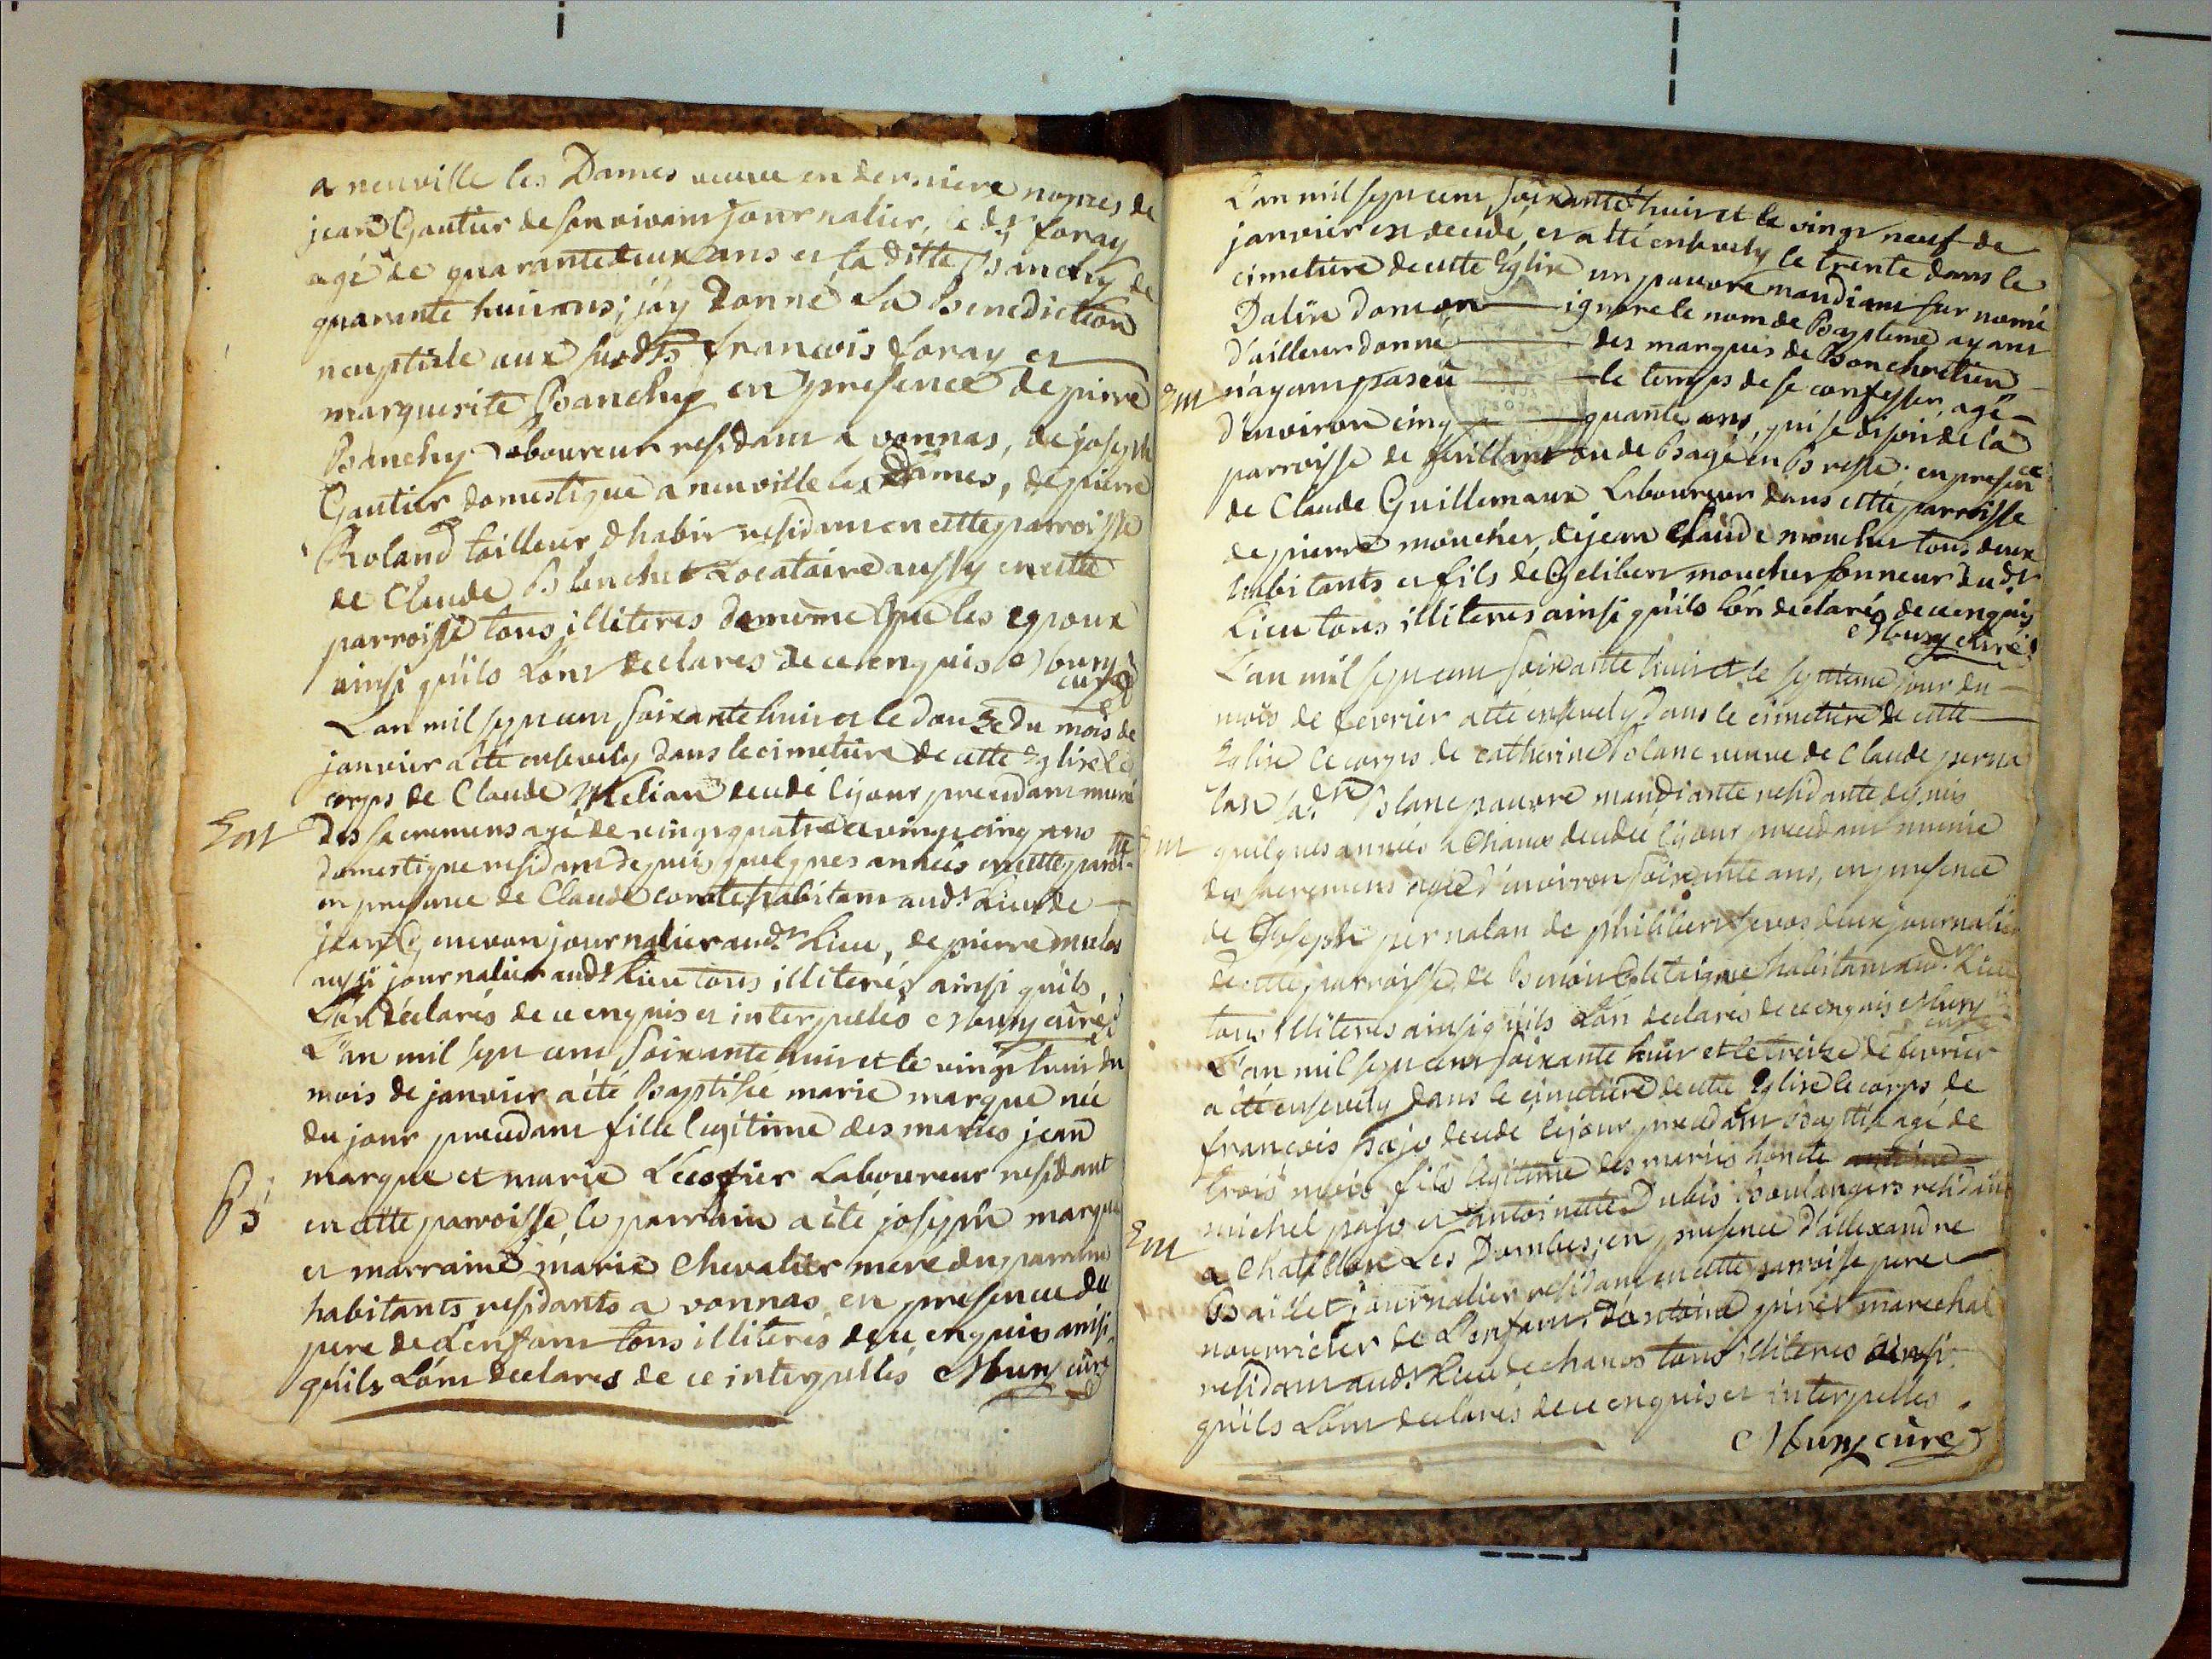 a neuville les Dames veuve en derniere nopces de
jean Gautier de son vivant journalier, le dt foray
agé de quarante deux ans et la ditte Banchy de
quarante huit ans; j'ay donné la Benediction
nuptiale aux susdts francois foray et
marguerite Banchy en presence de pierre
Banchy Laboureur residant a vonnas, de joseph
Gautier domestique a neuville les Dames, de pierre
Roland tailleur d'habit residant en cette parroisse
de Claude Blanchet Locataire aussy en cette
parroisse tous illiteres de meme que les epoux
ainsi quils Lont declares de ce enquis Mury
curé
L'an mil sept cent soixante huit et le douze du mois de
janvier a eté ensevely dans le cimetiere de cette Eglise le
corps de Claude decedé lejour precedant muni
Ent
des sacremens agé de vingt quatre a vingt cinq ans
domestique residant depuis quelques années en cette parroisse
en presence de Claude comte habitant audt Lieu de
jean journalier audt Lieu, de pierre mulet
aussi journalier audt Lieu tous illiterés ainsi quils
Lon déclarés de ce enquis et interpellés Mury curé
L'an mil sept cent soixante huit et le vingt huit du
mois de janvier a été Baptisée marie marque née
du jour precedant fille legitime des mariés jean
marque et marie L'ecofier Laboureur residant
B
en cette parroisse, le parrain a été joseph marque
et marraine marie Chevalier mere du parrain
habitants residants a vonnas en presence du
pere de L'enfant tous illiterés de ce enquis ainsi
quils Lont declares de ce interpellés Mury curé
L'an mil sept cent soixante huit et le vingt neuf de
janvier est decedé, et a eté ensevely le trente dans le
cimetiere de cette Eglise un pauvre mandiant sur nomé
Dalin dont on ignore le nom de Bapteme ayant
d'ailleur donné des marques de Bon chretien
Ent
n'ayant pas eu le temps de se confesser, agé
d'environ cinquante ans, qui se disoit de la
parroisse de ou de Bagé en Bresse; en presence
de Claude Guillemaux Laboureur dans cette parroisse
de pierre moucher, de jean Claude moucher tous deux
habitants et fils de Philibert moucher sonneur dudt
Lieu tous illiteres ainsi quils Lon declarés de ce enquis
Mury curé
L'an mil sept cent soixante huit et le septieme jour du
mois de fevrier a eté ensevely Dans le cimetiere de cette
Eglise le corps de catherine Blanc veuve de Claude perna
lan Blanc pauvre mandiante residante depuis
Ent
quelques années a Chanos decedée lejour precedant munie
des sacremens agée d'environ soixante ans, en presence
de Joseph pernalan de philibert deux journaliers
de cette parroisse, de Benoit habitant audt Lieu
tous illiteres ainsi quils Lon declarés de ce enquis Mury
curé
L'an mil sept cent soixante huit et le treize de fevrier
a été ensevely dans le cimetiere de cette Eglise le corps de
francois pajo decedé lejour precedant Baptisé agé de
trois mois fils legitime des mariés honete
michel pajo et antoinette Dubis Boulangers residants
Ent
a Chatillon Les Dombes; en presence d'allexandre
Baillet journalier residant en cette parroisse pere
nourricier de L'enfant, d'antoine marechal
residant audt Lieu de chanos tous illiteres ainsi
quils Lont declarés de ce enquis et interpelles
Mury curé